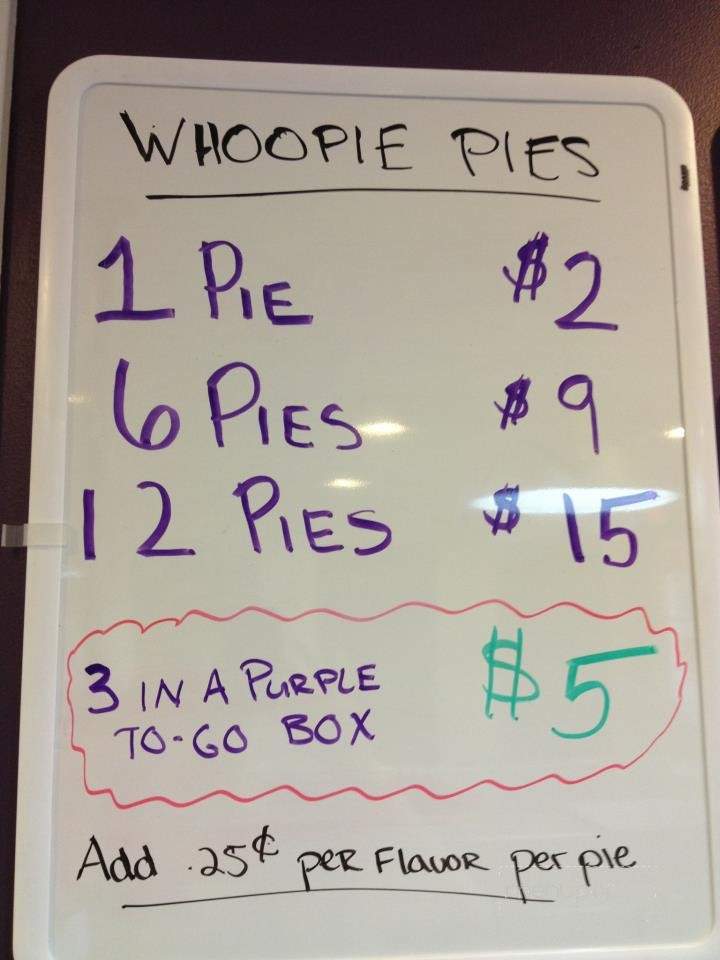 WHOOPIE PIES
1 PIE $2
6 PIES $9
12 PIES $15
3 IN A PURPLE
TO-GO BOX $5
Add .25¢ PER FLAVOR per pie